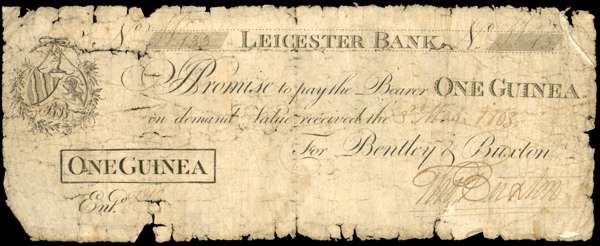 No LEICESTER BANK No
I Promise to pay the Bearer ONE GUINEA
on demand Value received the 1803
For Bentley & Buxton
ONE GUINEA
Entd
Buxton